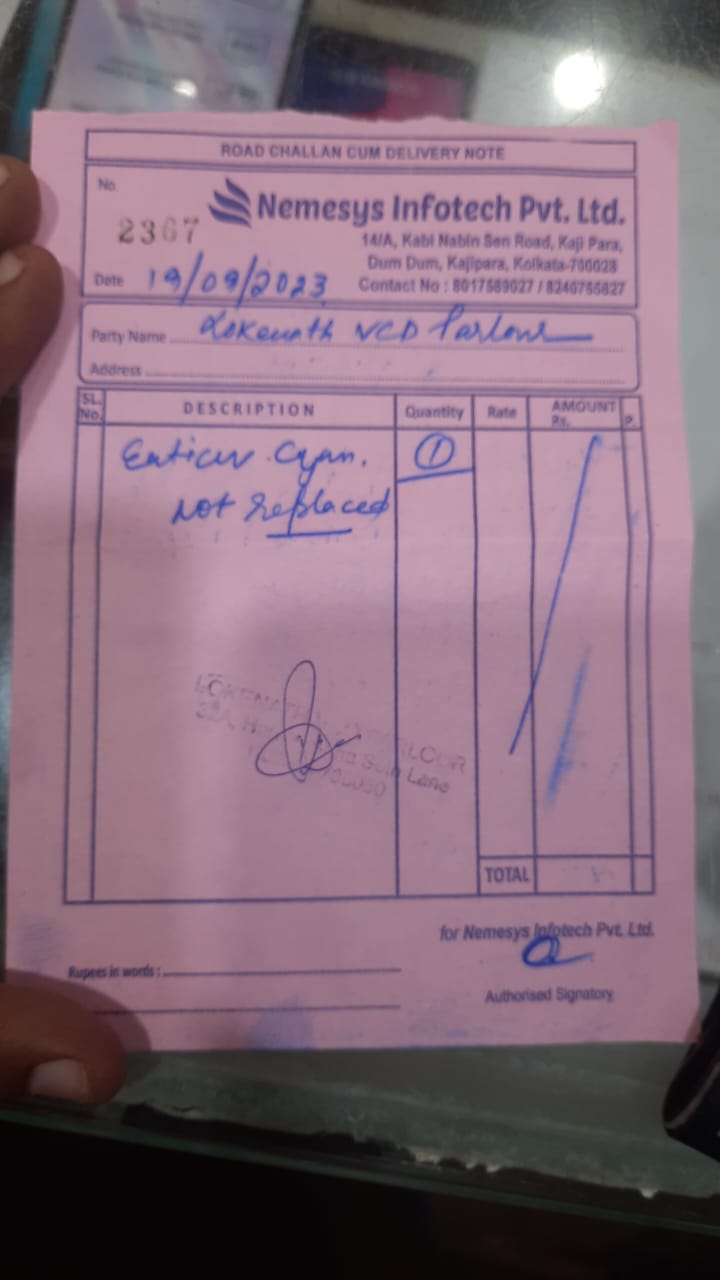 ROAD CHALLAN CUM DELIVERY NOTE
No.
2367
Nemesys Infotech Pvt. Ltd.
14/A, Kabi Nabin Sen Road, Kaji Para,
Dum Dum, Kajipara, Kolkata-700028
Contact No : 8017589027 / 8240765827
Date 19/09/2023
Party Name Lokenath VCD Parlour
Address
SL. No. DESCRIPTION Quantity Rate AMOUNT Rs. P.
Enticer Cyan. 1
Not Replaced
LOKENATH PARLOUR
32A, Sen Lane
TOTAL
for Nemesys Infotech Pvt. Ltd.
Rupees in words :
Authorised Signatory